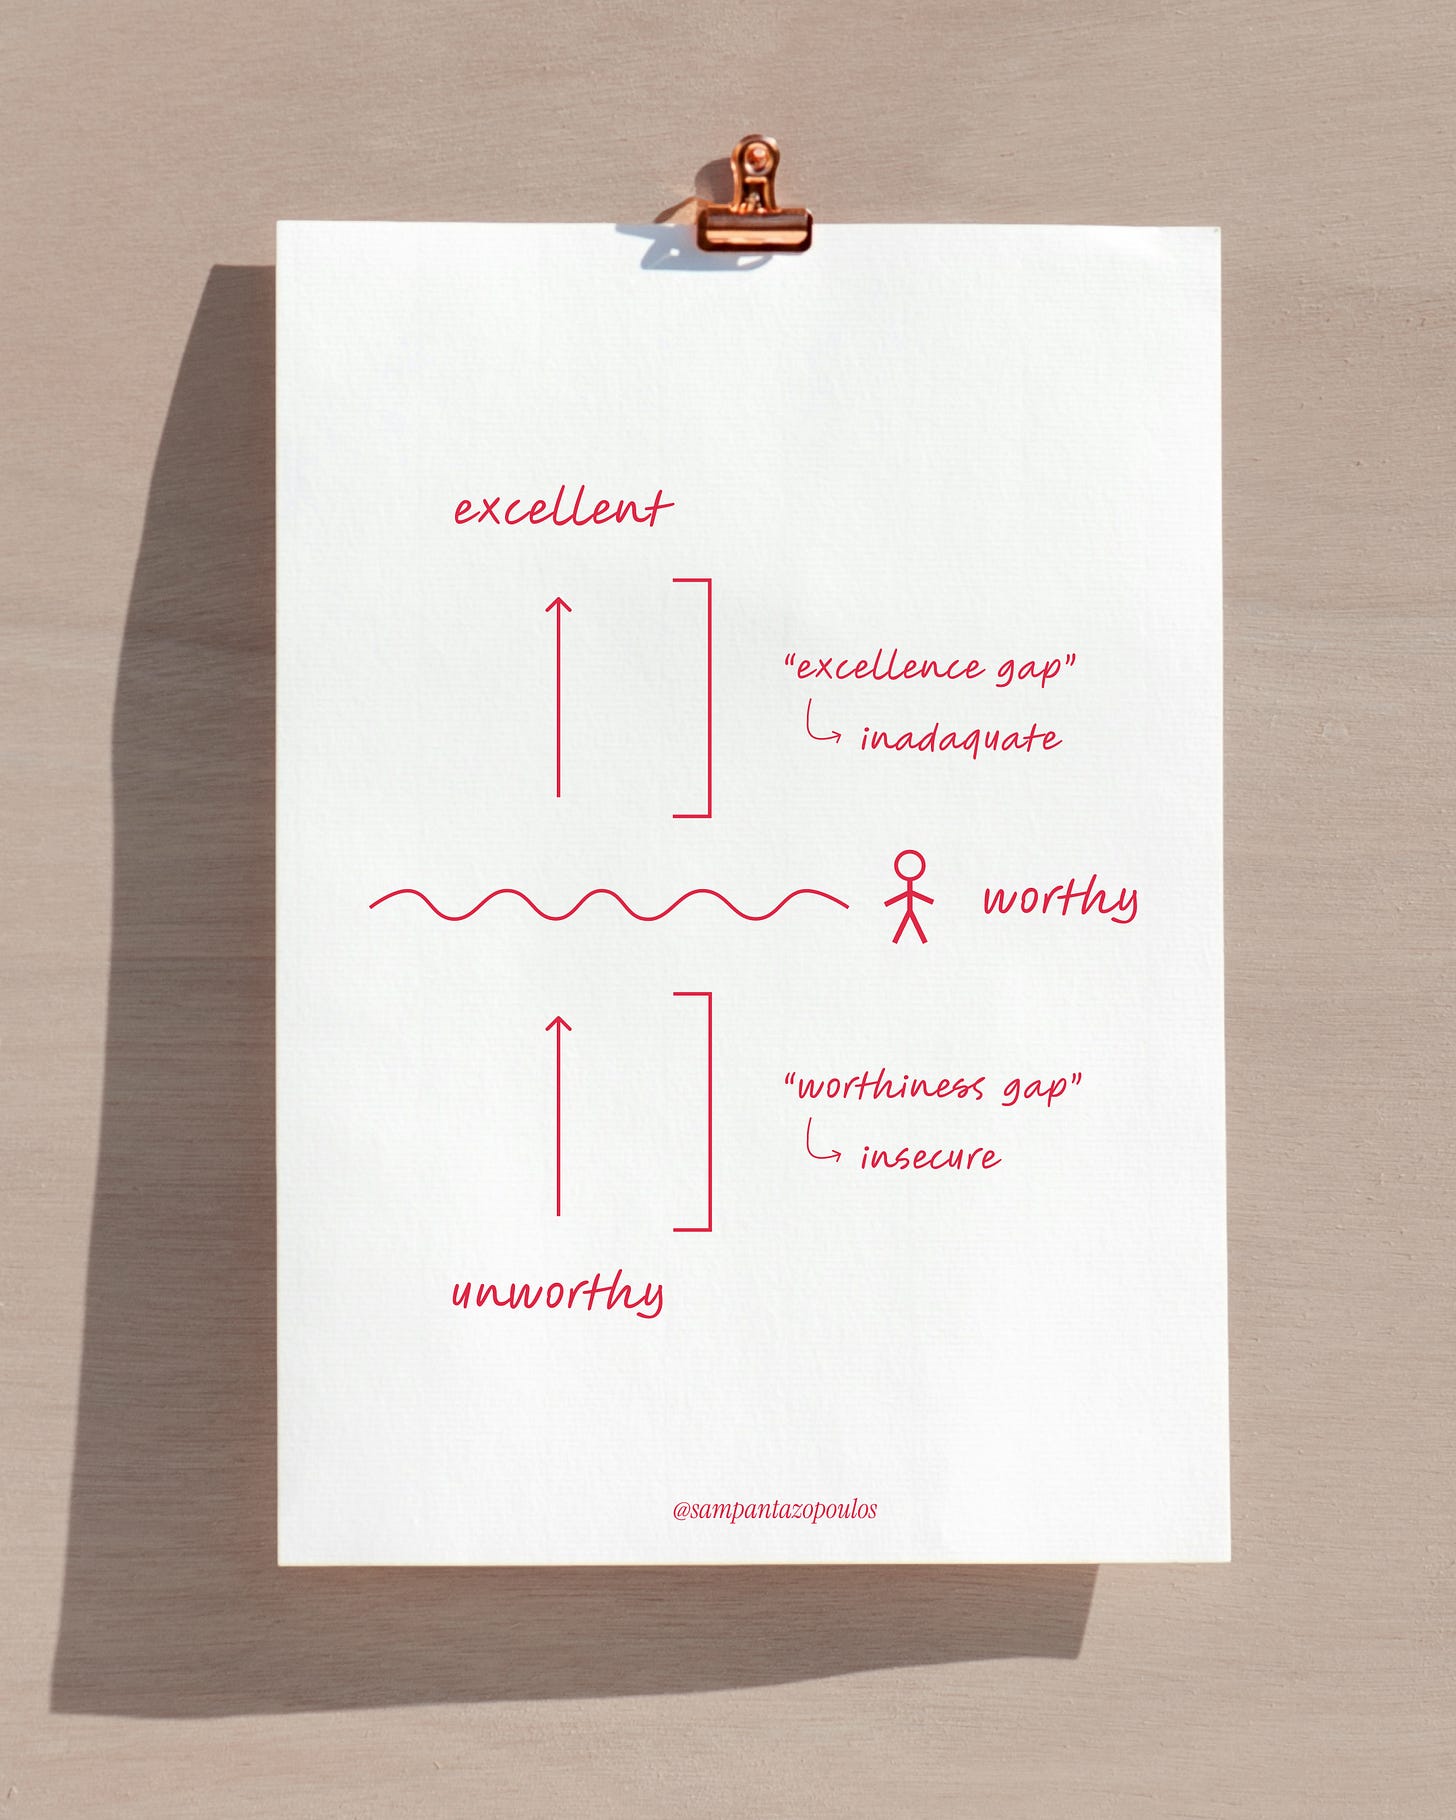 excellent
“excellence gap”
inadaquate
worthy
“worthiness gap”
insecure
unworthy
@sampantazopoulos